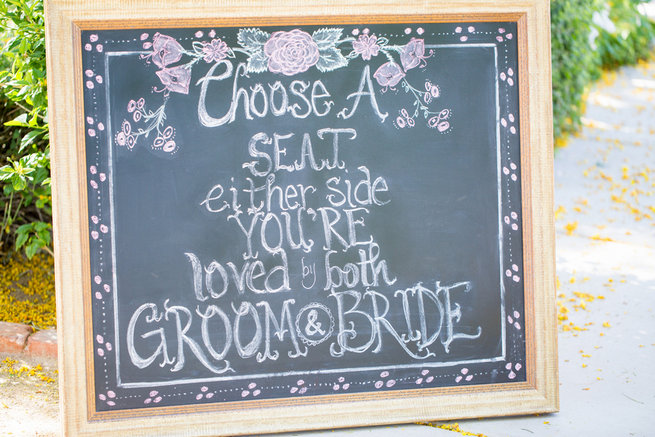 Choose A
SEAT
either side
YOU'RE
loved by both
GROOM & BRIDE